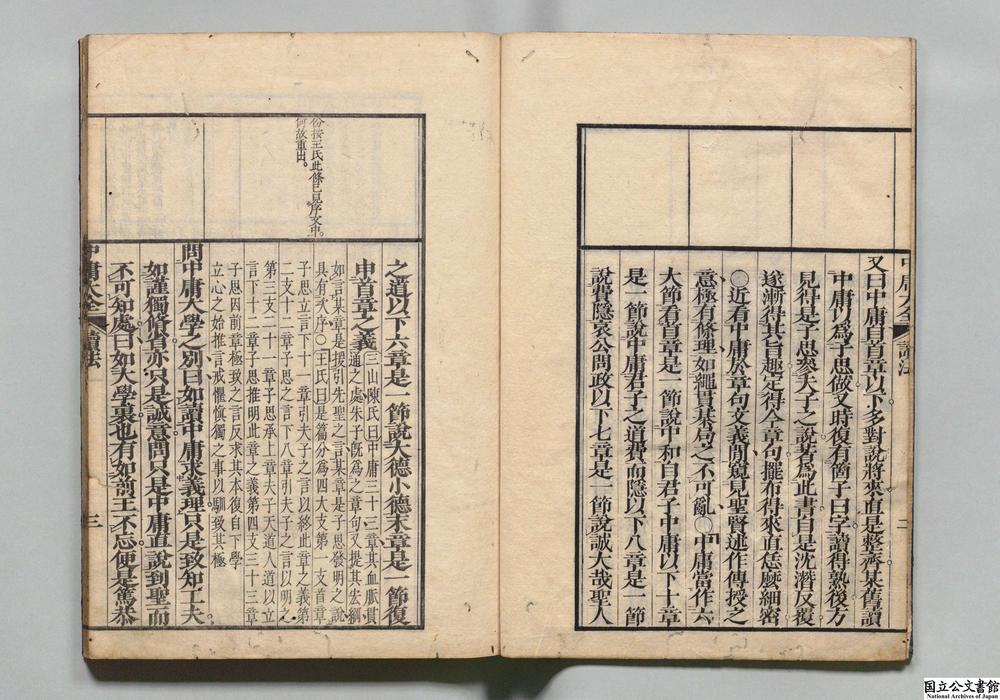 又曰中庸自首章以下多對說將來直是整齊某舊讀
中庸以爲子思做又時復有箇子曰字讀得熟後方
見得是子思參夫子之說著爲此書自是沈潛反覆
遂漸得其旨趣定得今章句擺布得來直恁麼細密
○近看中庸於章句文義閒窺見聖賢述作傳授之
意極有條理如繩貫棊局之不可亂○中庸當作六
大節看首章是一節說中和自君子中庸以下十章
是一節說中庸君子之道費而隱以下八章是一節
說費隱哀公問政以下七章是一節說誠大哉聖人
中庸大全 讀法 二
之道以下六章是一節說大德小德末章是一節復
申首章之義
三山陳氏曰中庸三十三章其血脈貫
通之處朱子旣爲之章句又提其宏綱
如言某章是援引先聖之言某章是子思發明之說
具有次序○王氏曰是篇分爲四大支第一支首章
子思立言下十一章引夫子之言以終此章之義第
二支十二章子思之言下八章引夫子之言以明之
第三支二十一章子思承上章夫子天道人道以立
言下十二章子思推明此章之義第四支三十三章
子思因前章極致之言反求其本復自下學
立心之始推言戒懼愼獨之事以馴致其極
問中庸大學之別曰如讀中庸求義理只是致知工夫
如謹獨脩省亦只是誠意問只是中庸直說到聖而
不可知處曰如大學裏也有如前王不忘便是篤恭
中庸大全 讀法 三
份按王氏此條已見序文中
何故重出。
国立公文書館
National Archives of Japan